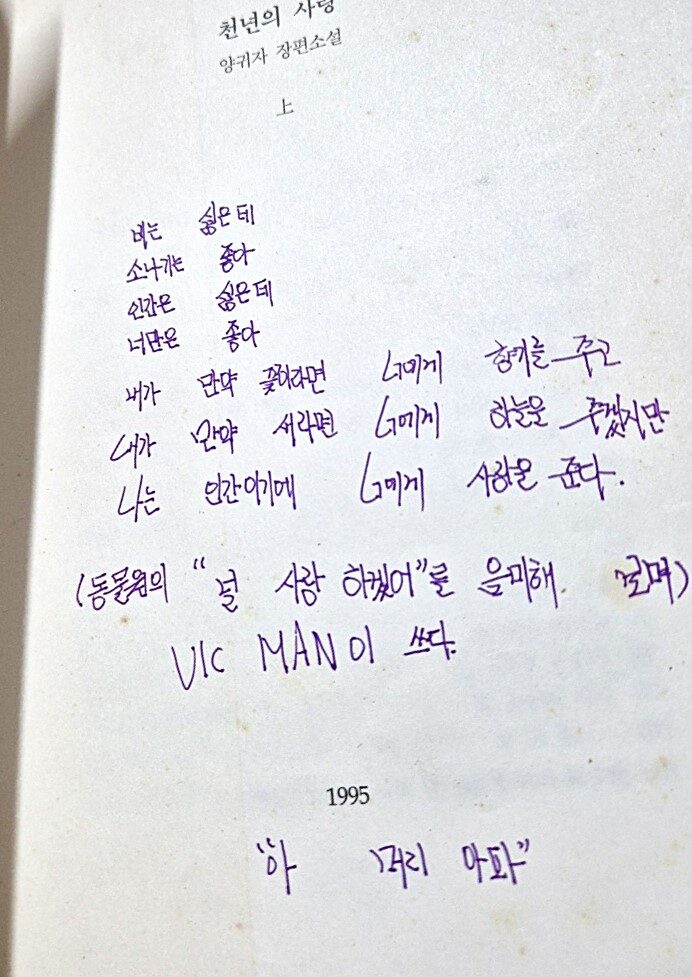 천년의 사랑
양귀자 장편소설
上
비는 싫은데
소나기는 좋아
인간은 싫은데
너만은 좋아
내가 만약 꽃이라면 너에게 향기를 주고
내가 만약 새라면 너에게 하늘을 주겠지만
나는 인간이기에 너에게 사랑을 준다.
(동물원의 "널 사랑 하겠어"를 음미해 보며)
VIC MAN이 쓰다.
1995
"아 머리 아파"